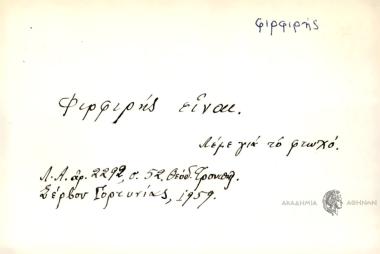 φιρφιρής
Φιρφιρής εἶναι.
Λέμε γιά τό φτωχό.
Λ.Α. ἀρ. 2292, σ. 52, Θεόδ. Τρουπ.
Σέρβου Γορτυνίας, 1959.
ΑΚΑΔΗΜΙΑ ΑΘΗΝΩΝ